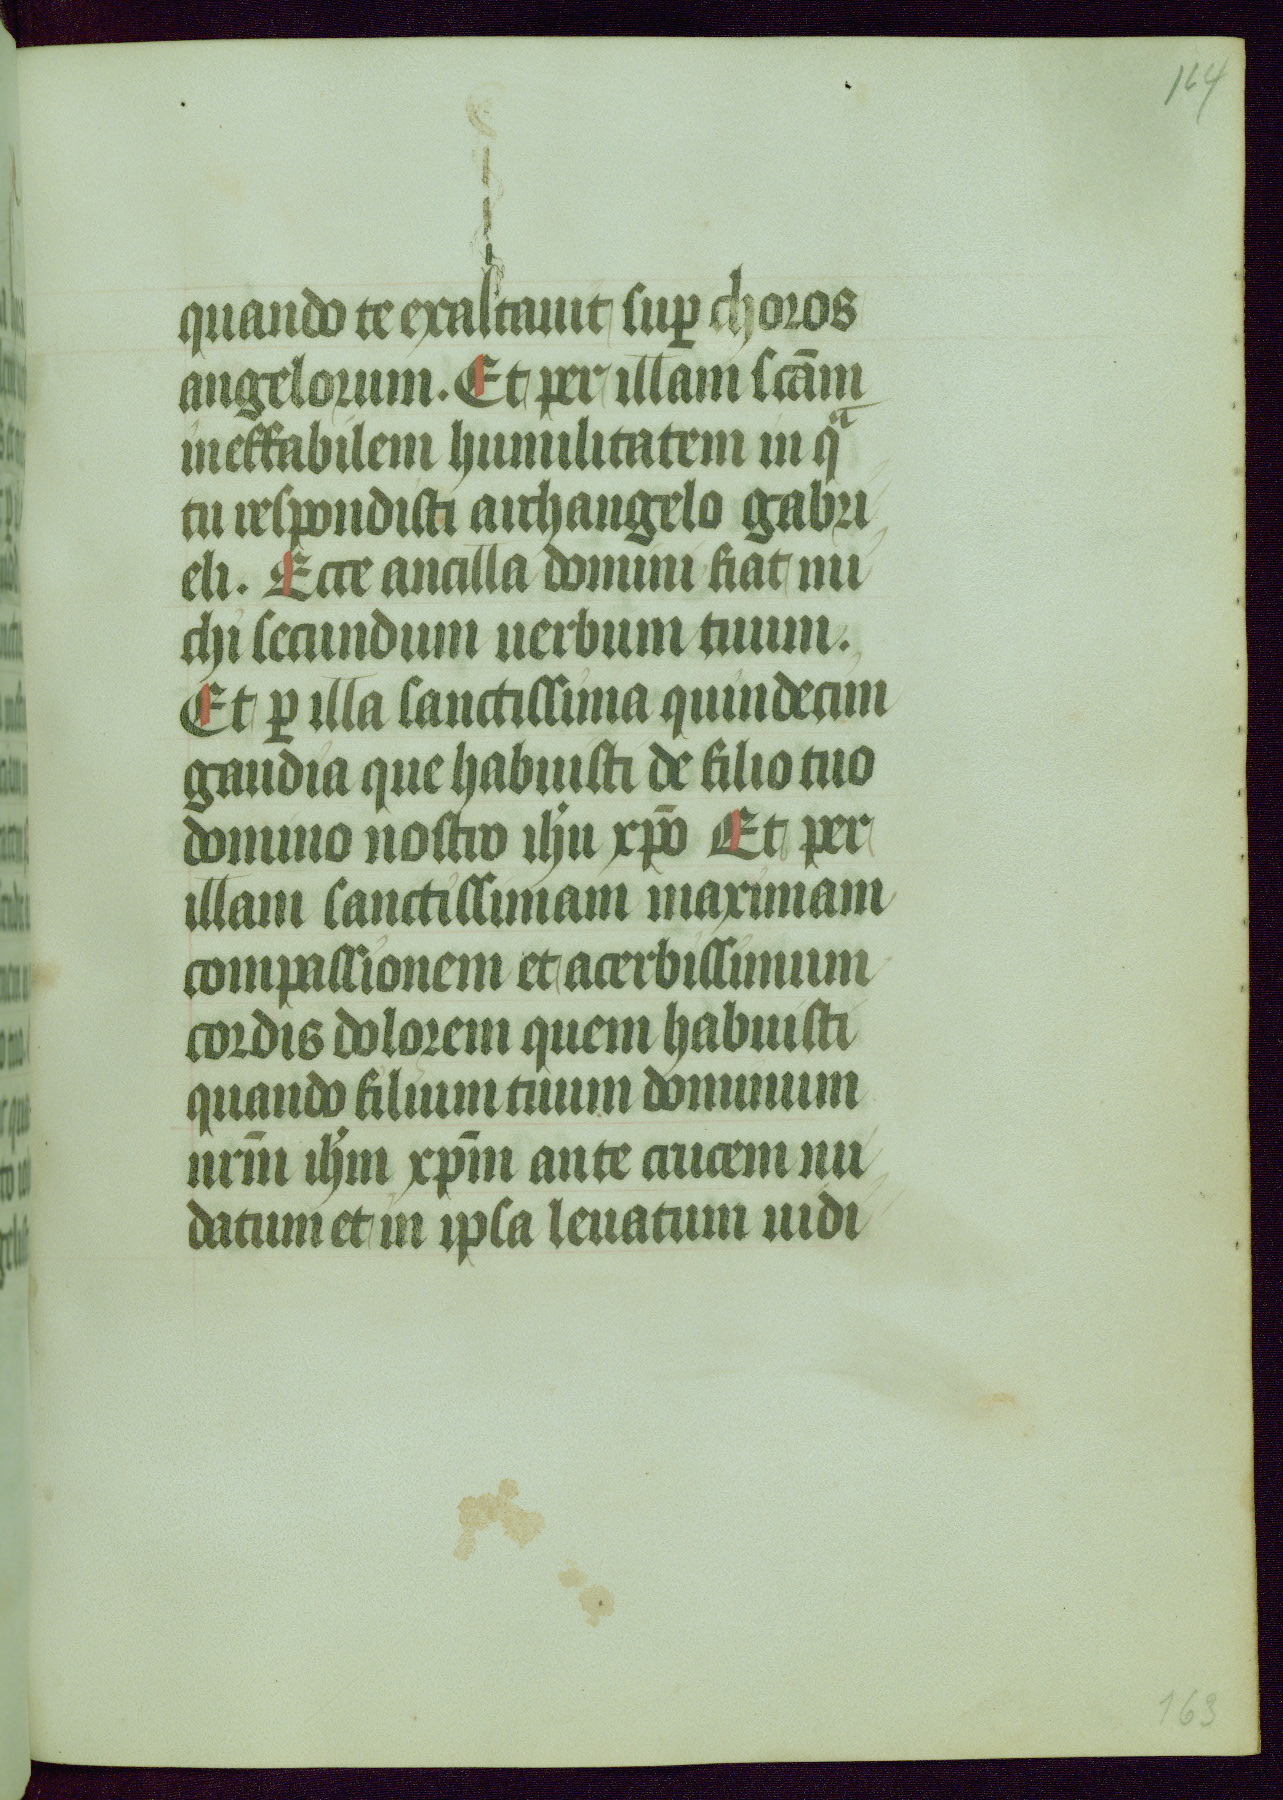 164
quando te exaltauit sup̱ choros
angelorum. Et per illam scām
ineffabilem humilitatem in qᵃ
tu respondisti archangelo gabri
eli. Ecce ancilla domini fiat mi
chi secundum uerbum tuum.
Et ꝑ illa sanctissima quindecim
gaudia que habuisti de filio tuo
domino nostro ih̾u xp̄o Et per
illam sanctissimam maximam
compassionem et acerbissimum
cordis dolorem quem habuisti
quando filium tuum dominum
nrm̄ ih̾m xp̄m ante crucem nu
datum et in ipsa leuatum uidi
163